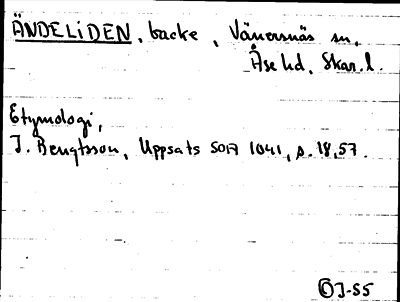 ÄNDELIDEN, backe, Vänersnäs sn,
Åse hd, Skar.l.
Etymologi,
J. Bengtsson, Uppsats SOFI 1041, s. 18,57.
J-85